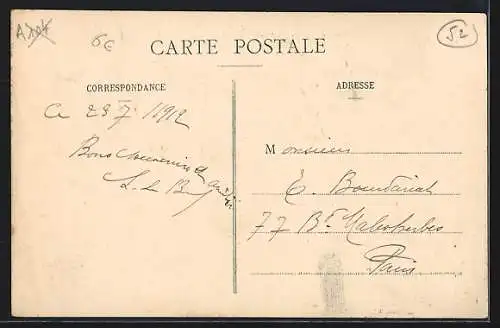 6€
52
CARTE POSTALE
CORRESPONDANCE
ADRESSE
Ce 23 7 1912
Bons Souvenirs
Monsieur
E.
77 Bd Malesherbes
Paris